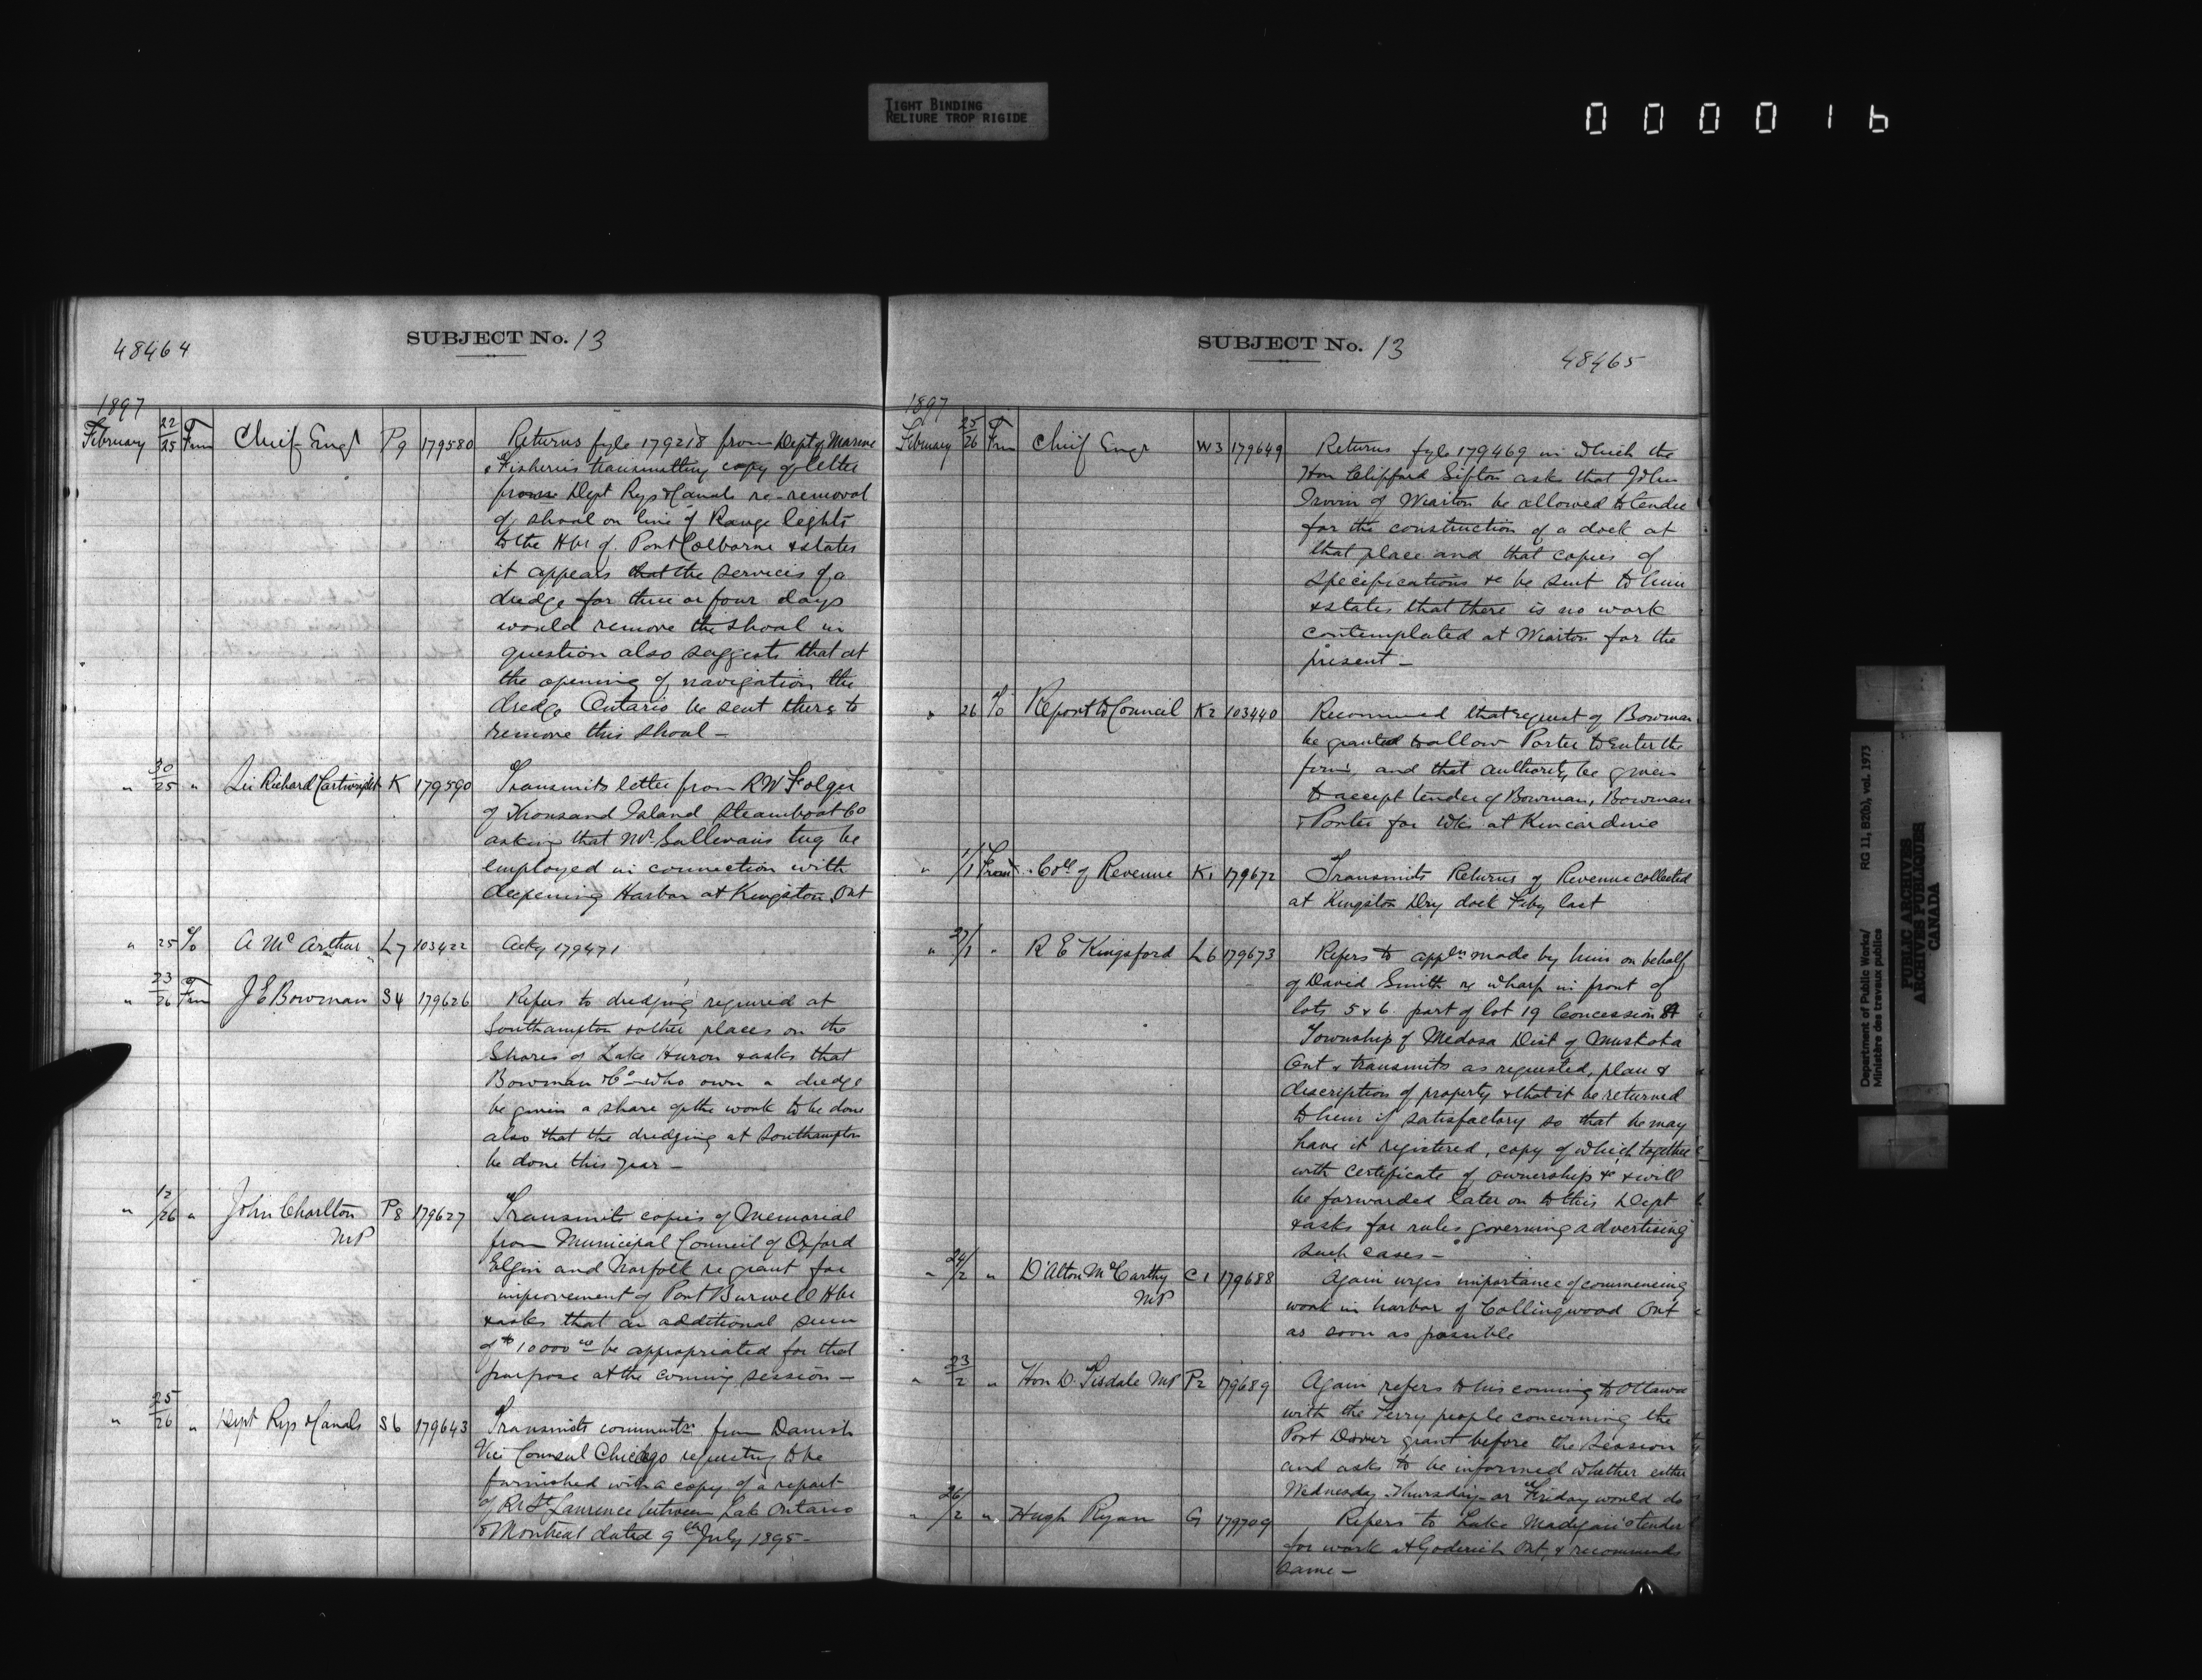 TIGHT BINDING
RELIURE TROP RIGIDE
000016
48464
SUBJECT No. 13
1897
February 22/25 From Chief Engr P9 179580 Returns fyle 179218 from Dept of Marine
& Fisheries transmitting copy of letter
from Dept Rys & Canals re-removal
of shoal on line of Range lights
to the Hbr of Port Colborne & states
it appears that the services of a
dredge for three or four days
would remove the shoal in
question also suggests that at
the opening of navigation the
dredge Ontario be sent there to
remove this shoal –
" 30/25 " Sir Richard Cartwright K 179590 Transmits letter from RW Folger
of Thousand Island Steamboat Co
asking that Mr Sullivans tug be
employed in connection with
deepening Harbor at Kingston Ont
" 25 To A McArthur L7 103422 Ackg 179471
" 23/26 From J E Bowman S4 179626 Refers to dredging required at
Southampton & other places on the
Shores of Lake Huron & asks that
Bowman & Co – who own a dredge
be given a share of the work to be done
also that the dredging at Southampton
be done this year –
" 12/26 " John Charlton P8 179627 Transmits copies of Memorial
MP
from Municipal Council of Oxford
Elgin and Norfolk re grant for
improvement of Port Burwell Hbr
& asks that an additional sum
of $10000 00 be appropriated for that
purpose at the coming session –
" 25/26 " Dept Rys & Canals S6 179643 Transmits communtn from Danish
Vice Counsul Chicago requesting to be
furnished with a copy of a report
of Rr St Laurence between Lake Ontario
& Montreal dated 9th July 1895 –
SUBJECT No. 13
48465
1897
February 25/26 From Chief Engr W3 179649 Returns fyle 179469 in which the
Hon Clifford Sifton asks that John
Irwin of Wiarton be allowed to tender
for the construction of a dock at
that place and that copies of
specifications &c be sent to him
& states that there is no work
contemplated at Wiarton for the
present –
" 26 To Report to Council K2 103440 Recommend that request of Bowman
be granted to allow Porter to enter the
firm, and that authority be given
to accept tender of Bowman, Bowman
& Porter for wks at Kincardine
" 1/1 From Coll of Revenue K1 179672 Transmits Returns of Revenue collected
at Kingston Dry dock Feby last
" 27/1 " R E Kingsford L6 179673 Refers to appln made by him on behalf
of David Smith re wharf in front of
lots 5 & 6 part of lot 19 Concession
Township of Medora Dist of Muskoka
Ont & transmits as requested, plan &
description of property & that it be returned
to him if satisfactory so that he may
have it registered, copy of which together
with certificate of ownership &c & will
be forwarded later on to this Dept
& asks for rules governing advertising
such cases –
" 24/2 " D'Alton McCarthy C1 179688 Again urges importance of commencing
MP
work in harbor of Collingwood Ont
as soon as possible
" 23/2 " Hon D. Tisdale MP P2 179689 Again refers to his coming to Ottawa
with the Ferry people concerning the
Port Dover grant before the session
and asks to be informed whether either
Wednesday Thursday or Friday would do
" 26/2 " Hugh Ryan G 179709 Refers to Luke Madigan's tender
for work at Goderich Ont & recommends
same –
Department of Public Works/ RG 11, B2(b), vol. 1973
Ministère des travaux publics
PUBLIC ARCHIVES
ARCHIVES PUBLIQUES
CANADA